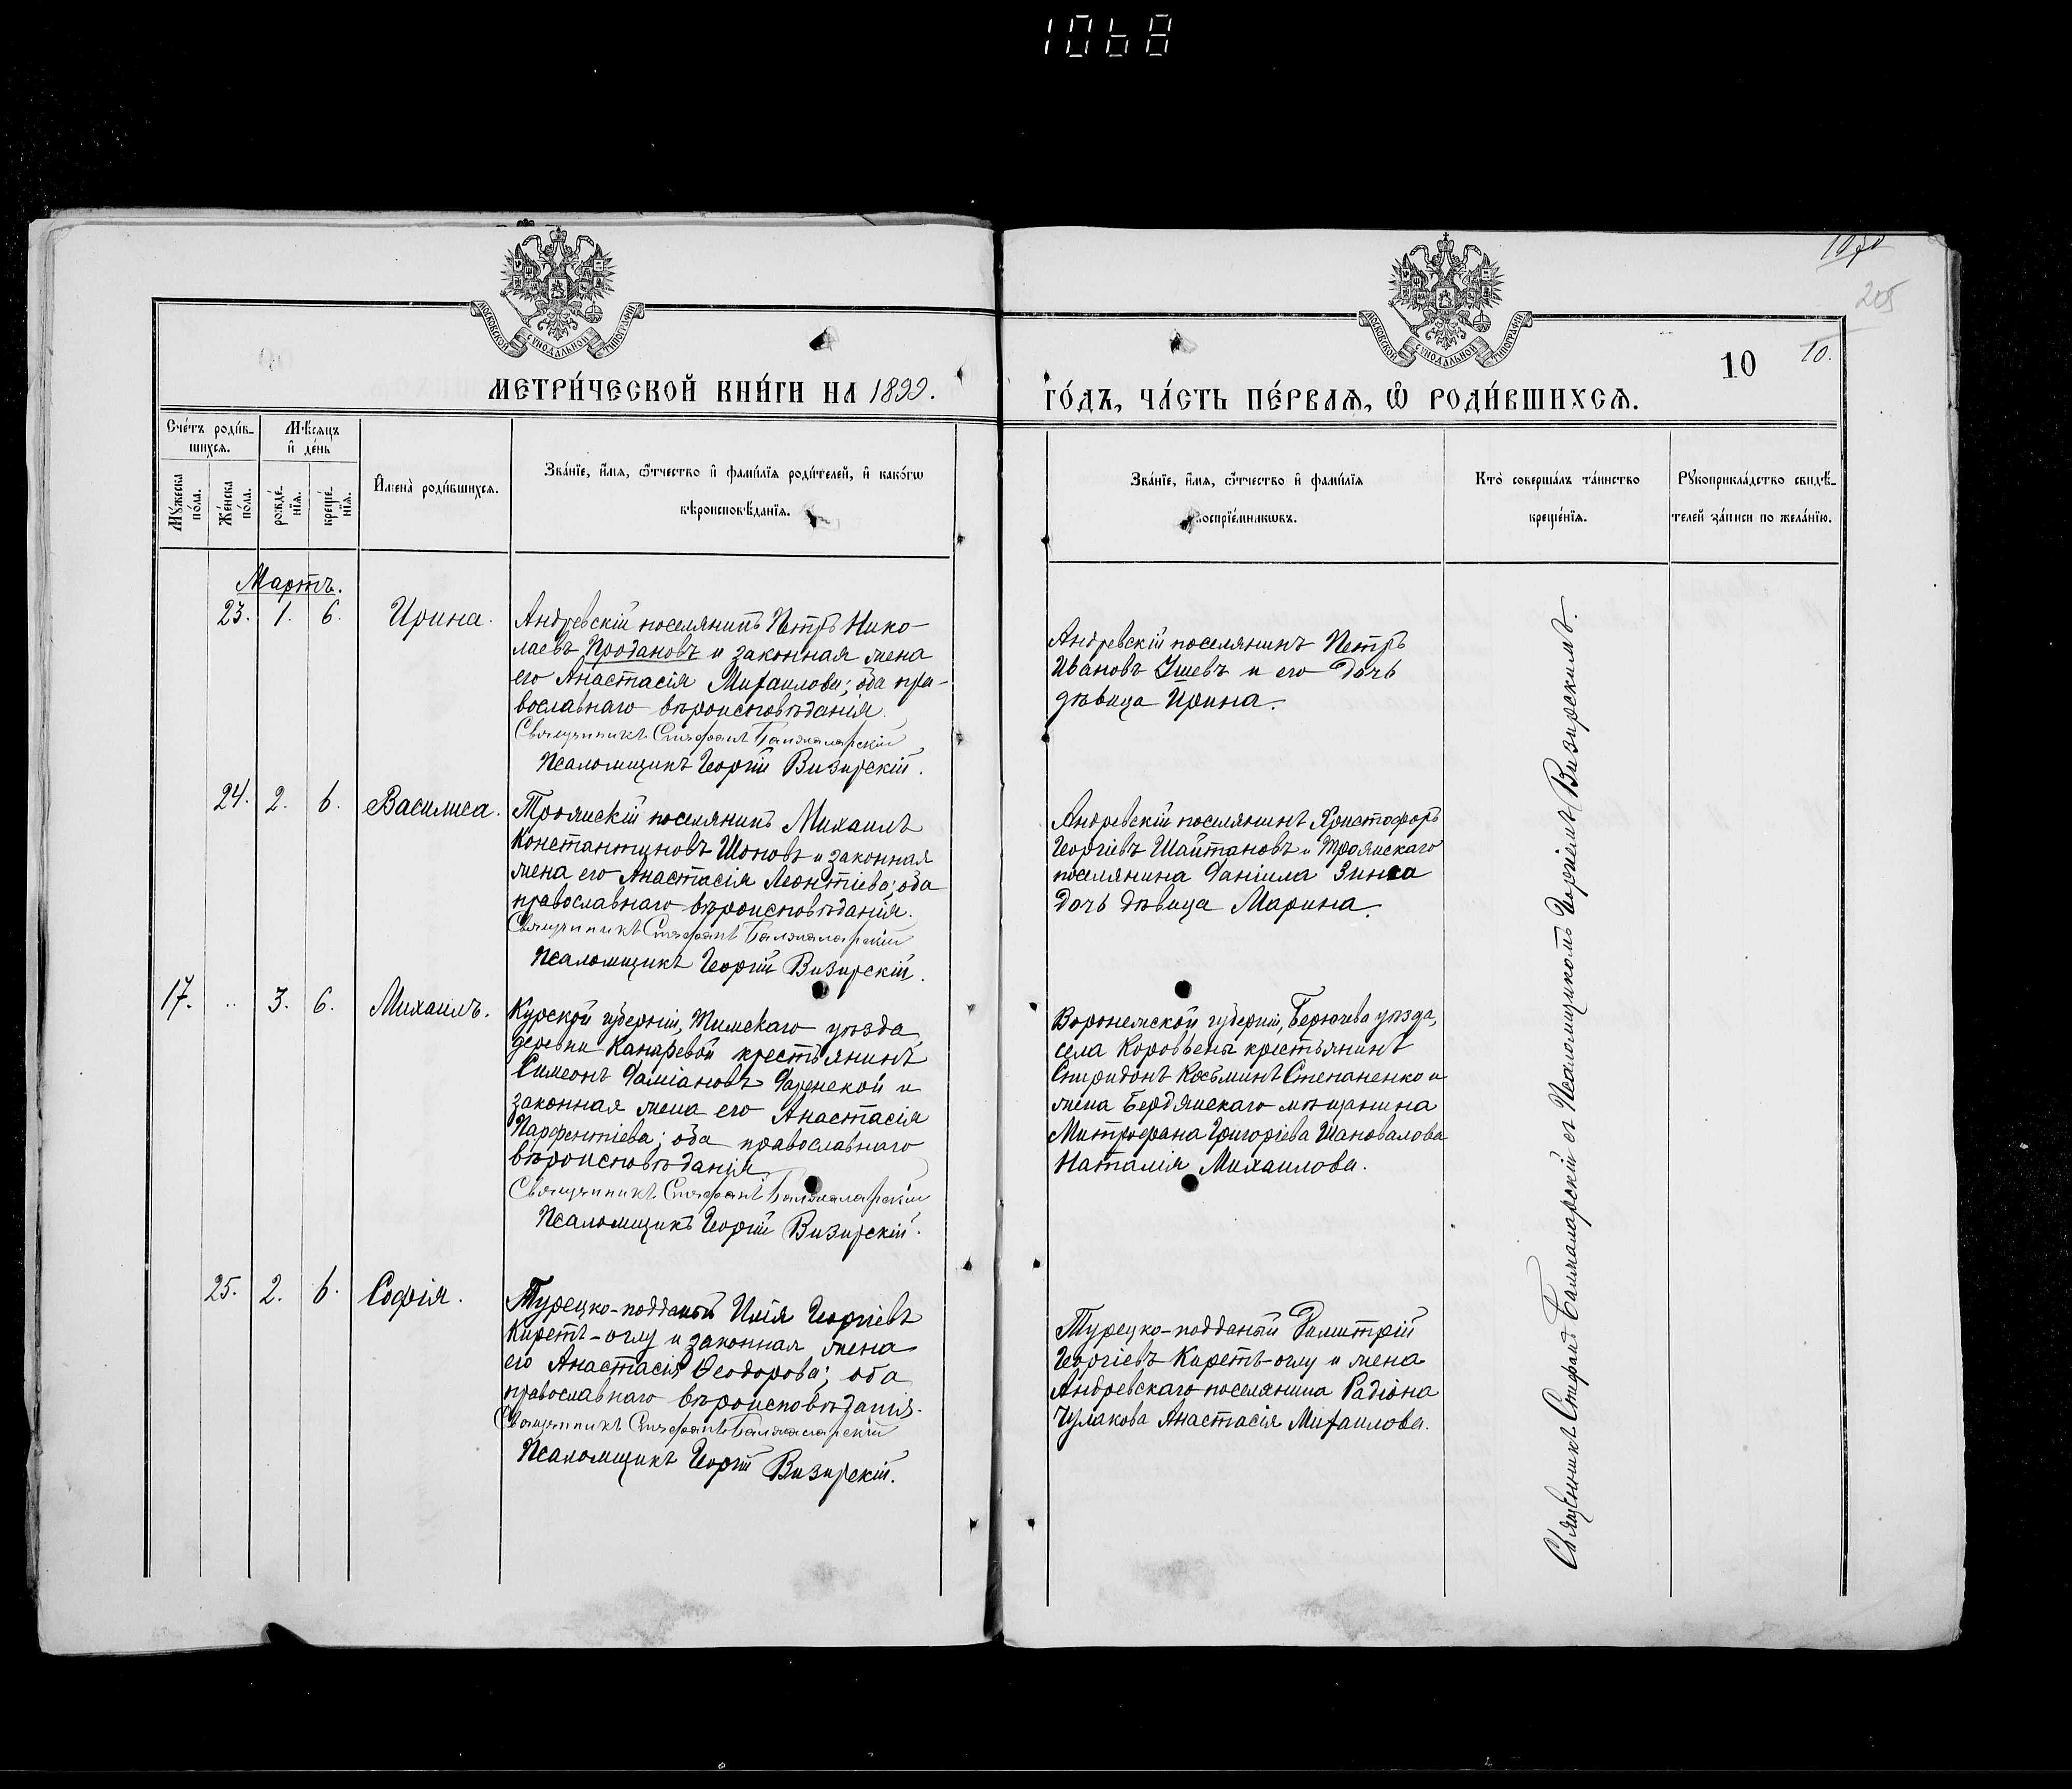 1068
1070
205
10
10.
МОСКОВСКОЙ СѴНОДАЛЬНОЙ ТИПОГРАФІИ
МОСКОВСКОЙ СѴНОДАЛЬНОЙ ТИПОГРАФІИ
МЕТРИ́ЧЕСКОЙ КНИ́ГИ НА 1899.
ГО́ДЪ, ЧА́СТЬ ПЕ́РВАѦ, Ѽ РОДИ́ВШИХСѦ.
Сче́тъ роди́в-
шихсѧ.
Мѣсѧцъ
и҆ де́нь
Мꙋ́жеска
по́ла.
Же́нска
по́ла.
рожде́-
нїѧ.
креще́-
нїѧ.
И҆мена̀ роди́вшихсѧ.
Зва́нїе, и҆́мѧ, ѻ҆́тчество и҆ фами́лїѧ роди́телей, и҆ како́гѡ
вѣроисповѣ́данїѧ.
Зва́нїе, и҆́мѧ, ѻ҆́тчество и҆ фами́лїѧ
воспрїе́мникѡвъ.
Кто̀ соверша́лъ та́инство
креще́нїѧ.
Рꙋкоприкла́дство свидѣ́-
телей за́писи по жела́нїю.
Мартъ.
23. 1. 6. Ирина.
Андревскій поселянинъ Петръ Нико-
лаевъ Продановъ и законная жена
его Анастасія Михаилова; оба пра-
вославнаго вѣроисповѣданія.
Священникъ Стефанъ Балжаларскій
Псаломщикъ Георгій Визирскій.
Андревскій поселянинъ Петръ
Ивановъ Ушевъ и его дочь
дѣвица Ирина.
24. 2. 6. Василиса.
Троянскій поселянинъ Михаилъ
Константиновъ Шоповъ и законная
жена его Анастасія Леонтіева; оба
православнаго вѣроисповѣданія.
Священникъ Стефанъ Балжаларскій
Псаломщикъ Георгій Визирскій.
Андревскій поселянинъ Христофоръ
Георгіевъ Шайтановъ и Троянскаго
поселянина Даніила Зинга
дочь дѣвица Марина.
17. .. 3. 6. Михаилъ.
Курской губерніи, Тимскаго уѣзда,
деревни Канаревой крестьянинъ
Симеонъ Даміановъ и
законная жена его Анастасія
Парфентіева; оба православнаго
вѣроисповѣданія.
Священникъ Стефанъ Балжаларскій
Псаломщикъ Георгій Визирскій.
Воронежской губерніи, Берючева уѣзда,
села крестьянинъ
Спиридонъ Косьминъ Степаненко и
жена Бердянскаго мѣщанина
Митрофана Григоріева Шаповалова
Наталія Михаилова.
25. 2. 6. Софія.
Турецко-подданый Илія Георгіевъ
Киретъ-оглу и законная жена
его Анастасія Ѳеодорова; оба
православнаго вѣроисповѣданія.
Священникъ Стефанъ Балжаларскій
Псаломщикъ Георгій Визирскій.
Турецко-подданый Димитрій
Георгіевъ Киретъ-оглу и жена
Андревскаго поселянина Радіона
Чулакова Анастасія Михаилова.
Священникъ Стефанъ Балжаларскій съ Псаломщикомъ Георгіемъ Визирскимъ.